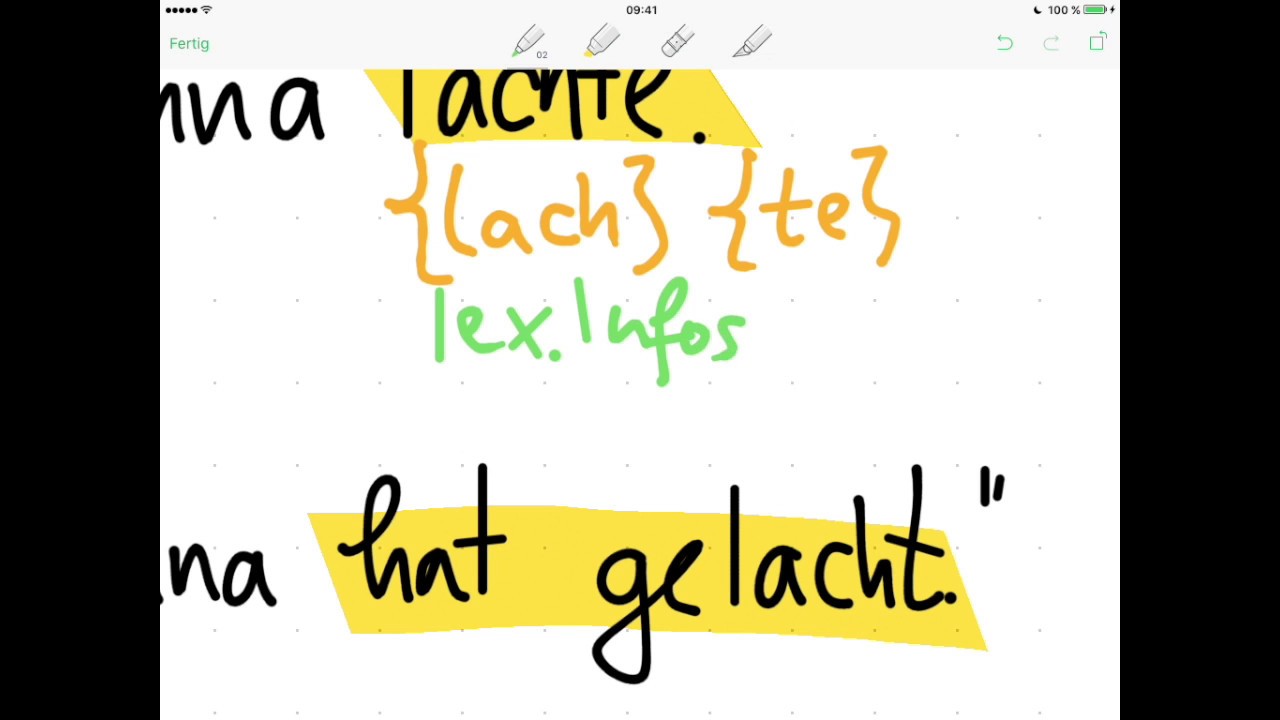 09:41
100 %
Fertig
02
nna lachte.
{lach} {te}
lex. Infos
na hat gelacht."